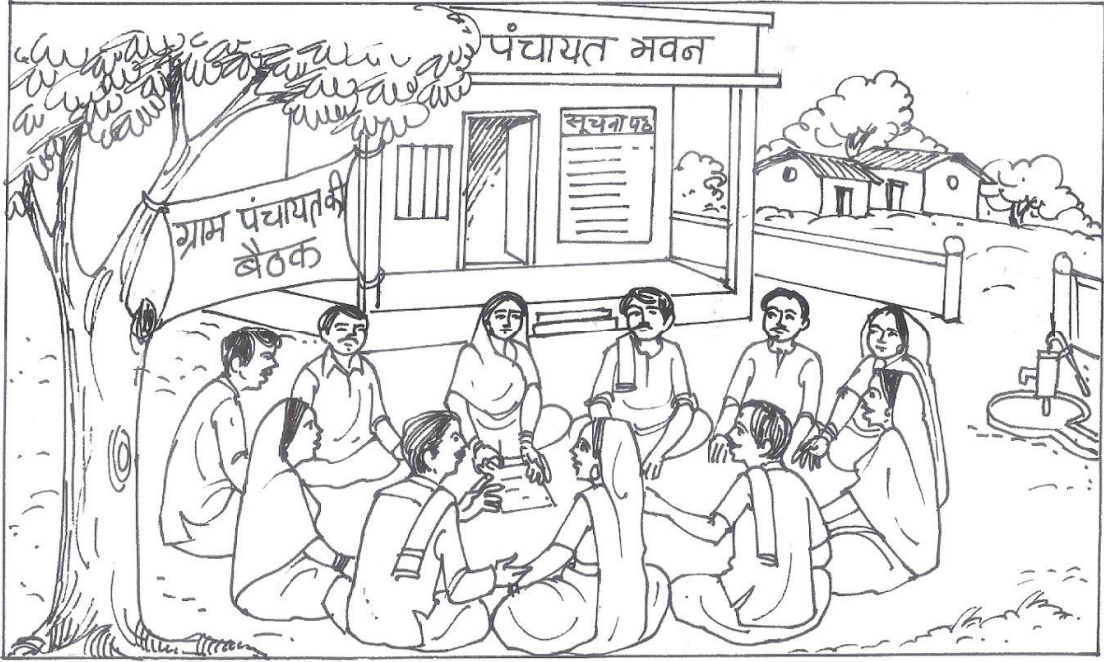 पंचायत भवन
सूचना पट
ग्राम पंचायत की
बैठक